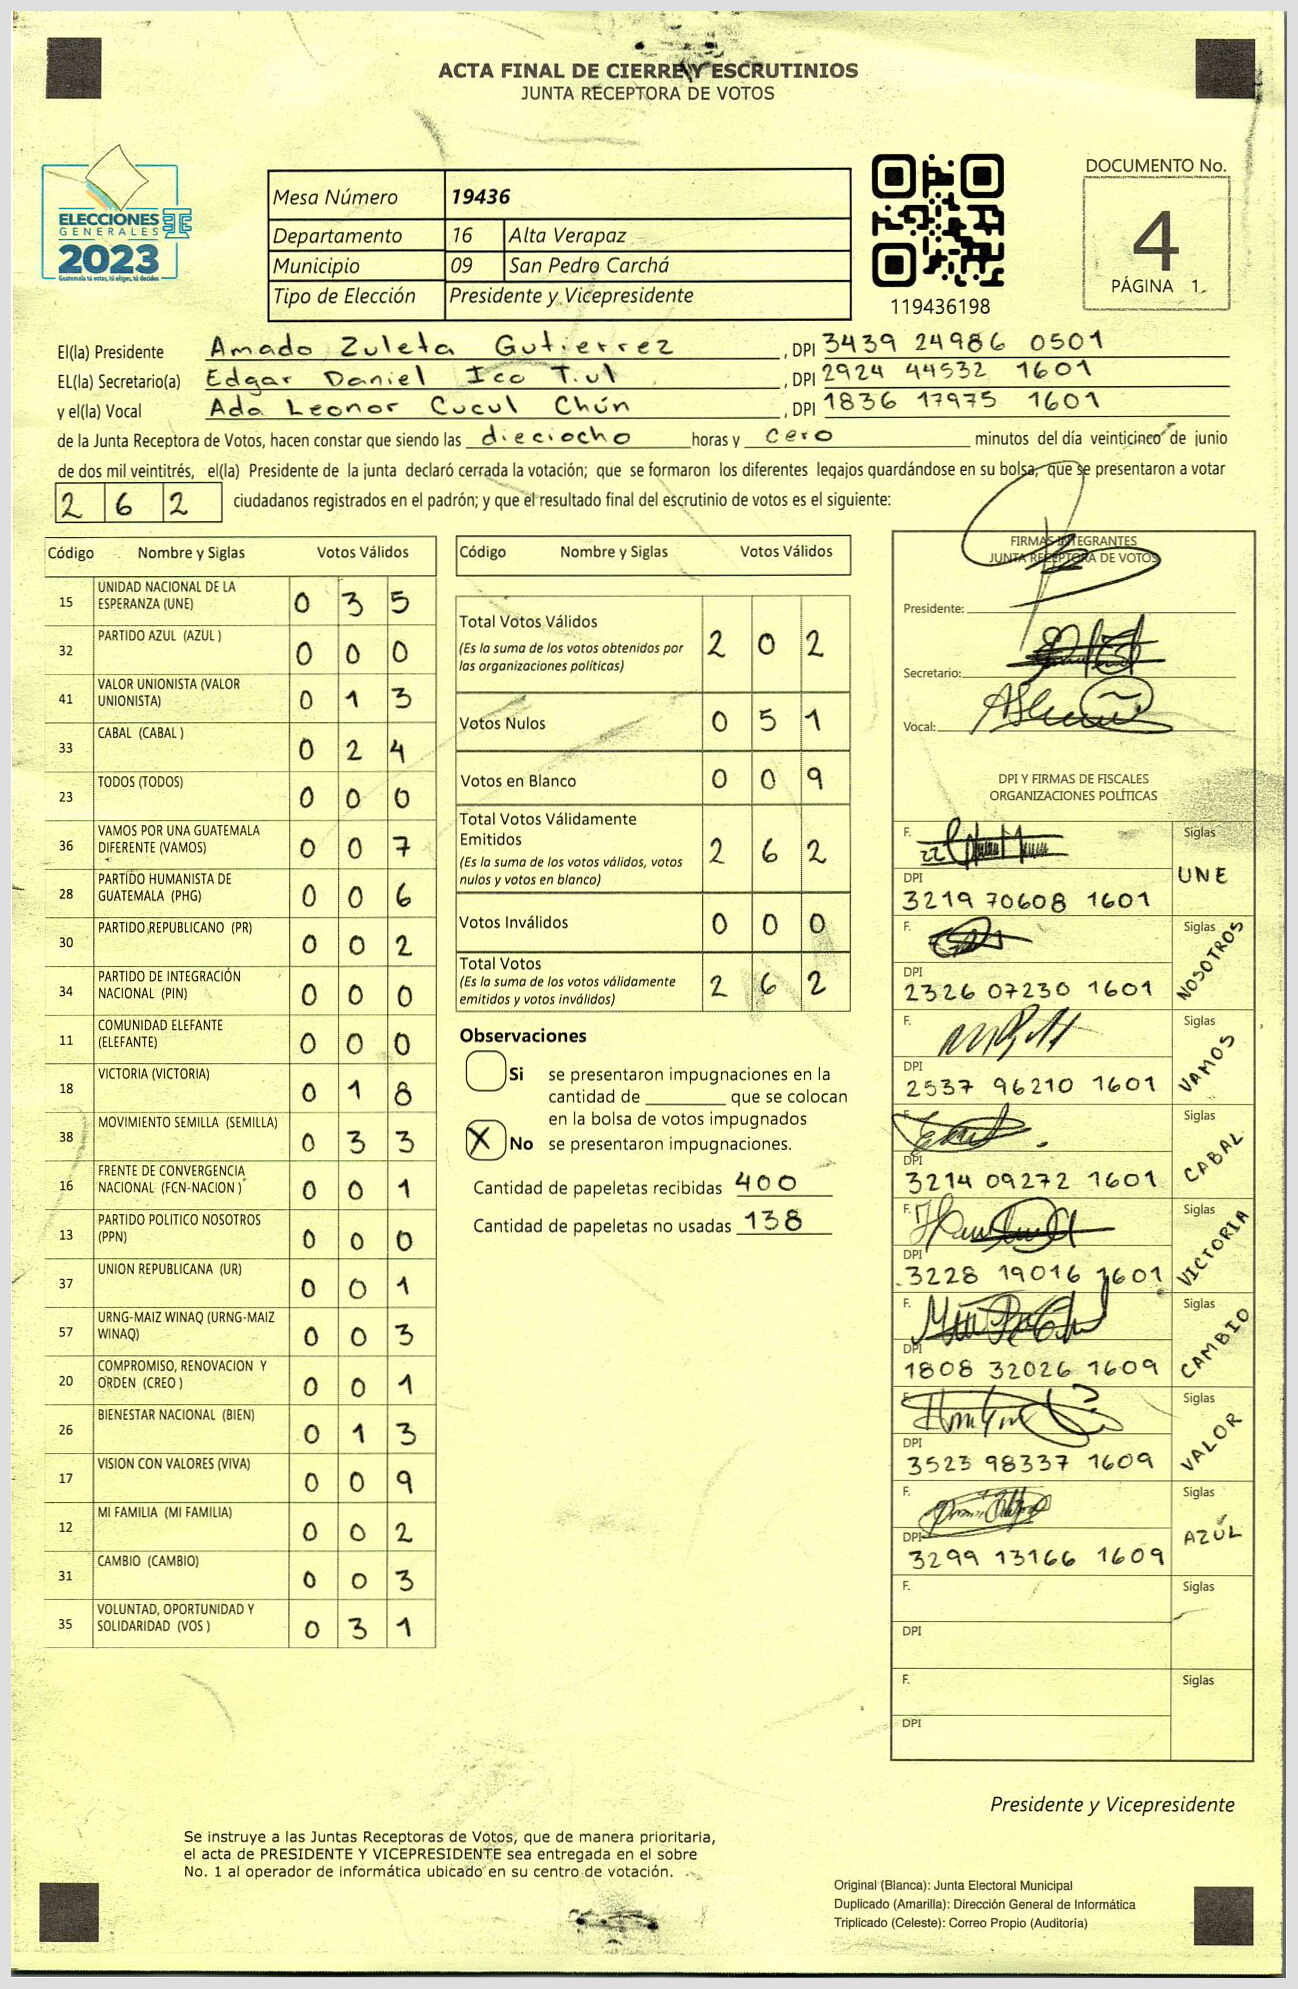 ACTA FINAL DE CIERRE Y ESCRUTINIOS
JUNTA RECEPTORA DE VOTOS
ELECCIONES
GENERALES
2023
Guatemala tú votas, tú eliges, tú decides
Mesa Número 19436
Departamento 16 Alta Verapaz
Municipio 09 San Pedro Carchá
Tipo de Elección Presidente y Vicepresidente
119436198
DOCUMENTO No.
4
PÁGINA 1
El(la) Presidente Amado Zuleta Gutierrez, DPI 3439 24986 0501
EL(la) Secretario(a) Edgar Daniel Ico Tiul, DPI 2924 44532 1601
y el(la) Vocal Ada Leonor Cucul Chún, DPI 1836 17975 1601
de la Junta Receptora de Votos, hacen constar que siendo las dieciocho horas y cero minutos del día veinticinco de junio
de dos mil veintitrés, el(la) Presidente de la junta declaró cerrada la votación; que se formaron los diferentes legajos guardándose en su bolsa, que se presentaron a votar
262 ciudadanos registrados en el padrón; y que el resultado final del escrutinio de votos es el siguiente:
Código Nombre y Siglas Votos Válidos
15 UNIDAD NACIONAL DE LA ESPERANZA (UNE) 0 3 5
32 PARTIDO AZUL (AZUL ) 0 0 0
41 VALOR UNIONISTA (VALOR UNIONISTA) 0 1 3
33 CABAL (CABAL ) 0 2 4
23 TODOS (TODOS) 0 0 0
36 VAMOS POR UNA GUATEMALA DIFERENTE (VAMOS) 0 0 7
28 PARTIDO HUMANISTA DE GUATEMALA (PHG) 0 0 6
30 PARTIDO REPUBLICANO (PR) 0 0 2
34 PARTIDO DE INTEGRACIÓN NACIONAL (PIN) 0 0 0
11 COMUNIDAD ELEFANTE (ELEFANTE) 0 0 0
18 VICTORIA (VICTORIA) 0 1 8
38 MOVIMIENTO SEMILLA (SEMILLA) 0 3 3
16 FRENTE DE CONVERGENCIA NACIONAL (FCN-NACION ) 0 0 1
13 PARTIDO POLITICO NOSOTROS (PPN) 0 0 0
37 UNION REPUBLICANA (UR) 0 0 1
57 URNG-MAIZ WINAQ (URNG-MAIZ WINAQ) 0 0 3
20 COMPROMISO, RENOVACION Y ORDEN (CREO ) 0 0 1
26 BIENESTAR NACIONAL (BIEN) 0 1 3
17 VISION CON VALORES (VIVA) 0 0 9
12 MI FAMILIA (MI FAMILIA) 0 0 2
31 CAMBIO (CAMBIO) 0 0 3
35 VOLUNTAD, OPORTUNIDAD Y SOLIDARIDAD (VOS ) 0 3 1
Código Nombre y Siglas Votos Válidos
Total Votos Válidos 2 0 2
(Es la suma de los votos obtenidos por
las organizaciones políticas)
Votos Nulos 0 5 1
Votos en Blanco 0 0 9
Total Votos Válidamente
Emitidos 2 6 2
(Es la suma de los votos válidos, votos
nulos y votos en blanco)
Votos Inválidos 0 0 0
Total Votos
(Es la suma de los votos válidamente
emitidos y votos inválidos) 2 6 2
Observaciones
Si se presentaron impugnaciones en la
cantidad de ________ que se colocan
en la bolsa de votos impugnados
X No se presentaron impugnaciones.
Cantidad de papeletas recibidas 400
Cantidad de papeletas no usadas 138
FIRMAS INTEGRANTES
JUNTA RECEPTORA DE VOTOS
Presidente:
Secretario:
Vocal:
DPI Y FIRMAS DE FISCALES
ORGANIZACIONES POLÍTICAS
F. Siglas
DPI UNE
3219 70608 1601
F. Siglas
DPI NOSOTROS
2326 07230 1601
F. Siglas
DPI VAMOS
2537 96210 1601
F. Siglas
DPI CABAL
3214 09272 1601
F. Siglas
DPI VICTORIA
3228 19016 1601
F. Siglas
DPI CAMBIO
1808 32026 1609
F. Siglas
DPI VALOR
3523 98337 1609
F. Siglas
DPI AZÚL
3299 13166 1609
F. Siglas
DPI
F. Siglas
DPI
Presidente y Vicepresidente
Se instruye a las Juntas Receptoras de Votos, que de manera prioritaria,
el acta de PRESIDENTE Y VICEPRESIDENTE sea entregada en el sobre
No. 1 al operador de informática ubicado en su centro de votación.
Original (Blanca): Junta Electoral Municipal
Duplicado (Amarilla): Dirección General de Informática
Triplicado (Celeste): Correo Propio (Auditoría)